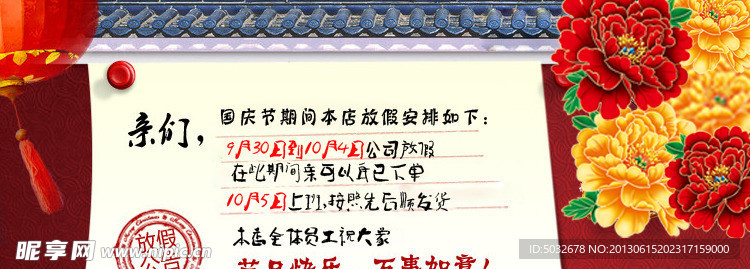 亲们，
国庆节期间本店放假安排如下：
9月30日到10月4日公司放假
在此期间亲可以自己下单
10月5日上班，按照先后顺发货
本店全体员工祝大家
节日快乐 万事如意！
放假
公告
昵享网 www.nipic.cn
ID:5032678 NO:20130615202317159000